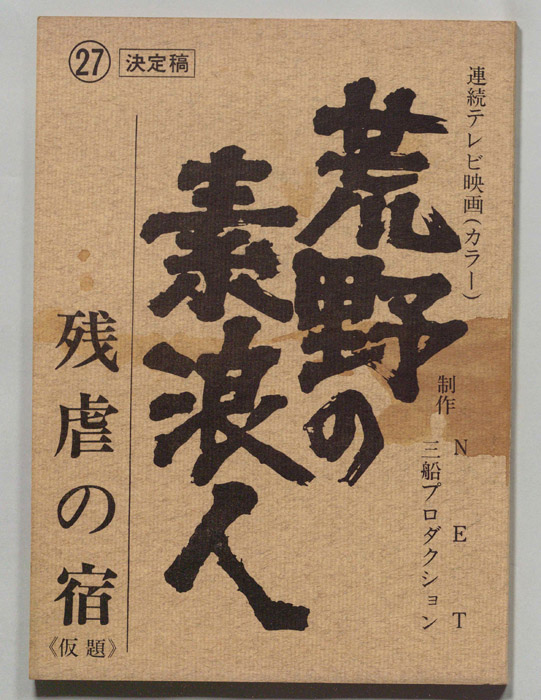 連続テレビ映画(カラー)
荒野の
素浪人
制作
NET
三船プロダクション
㉗ 決定稿
残虐の宿
《仮題》